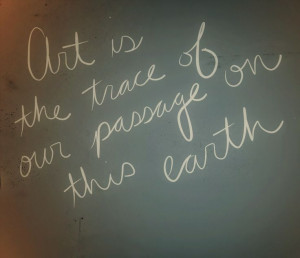 Art is
the trace of
our passage on
this earth